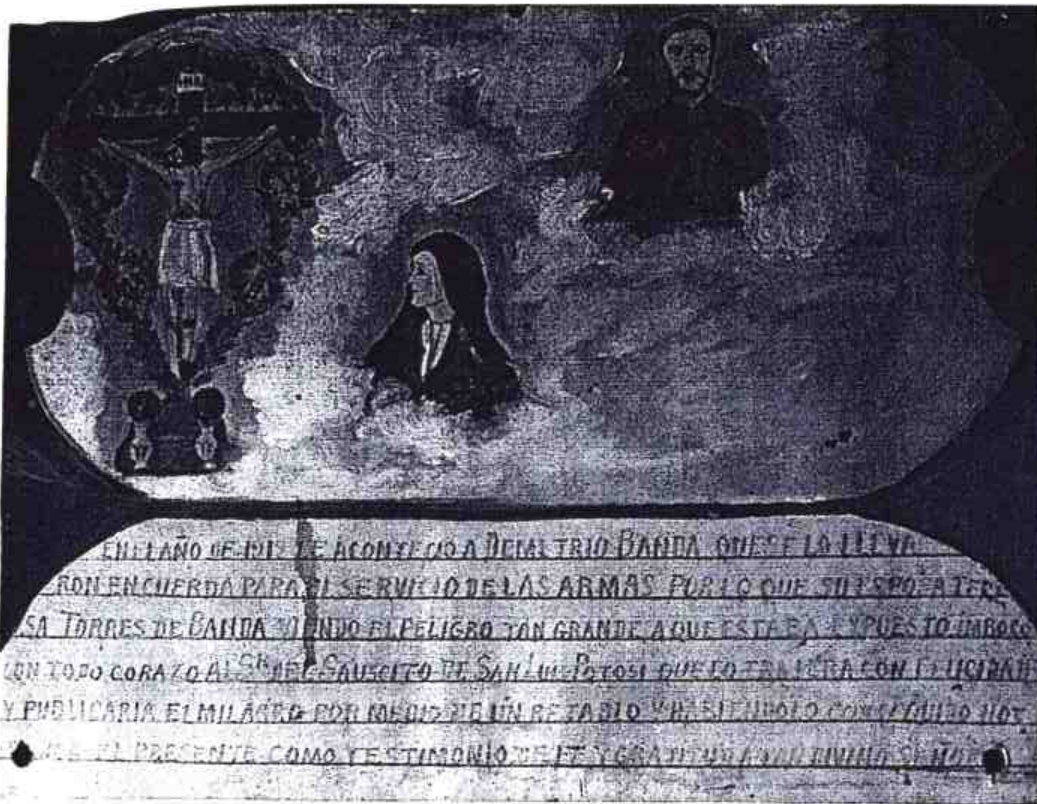 INRI
EN EL AÑO DE 1912 LE ACONTECIO A DEMETRIO BANDA QUE SE LO LLEVA
RON EN CUERDA PARA EL SERVICIO DE LAS ARMAS POR LO QUE SU ESPOSA TERE
SA TORRES DE BANDA VIENDO EL PELIGRO TAN GRANDE A QUE ESTABA EXPUESTO IMBOCO
CON TODO CORAZO AL SR DEL SAUSCITO DE SAN LUIS POTOSI QUE LO TRAJERA CON FELICIDAD
Y PUBLICARIA EL MILAGRO POR MEDIO DE UN RETABLO Y HABIENDOLO HOY
EL PRESENTE COMO TESTIMONIO DE FE Y GRATITUD A TAN DIVINO SEÑOR